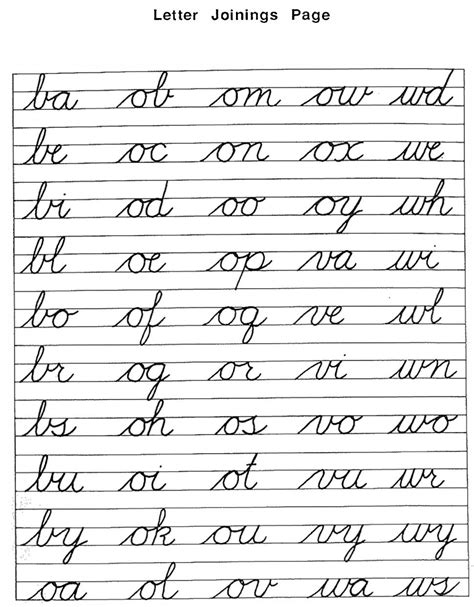 Letter Joinings Page
ba ob om ow wd
be oc on ox we
bi od oo oy wh
bl oe op va wi
bo of oq ve wl
br og or vi wn
bs oh os vo wo
bu oi ot vu wr
by ok ou vy wy
oa ol ov wa ws